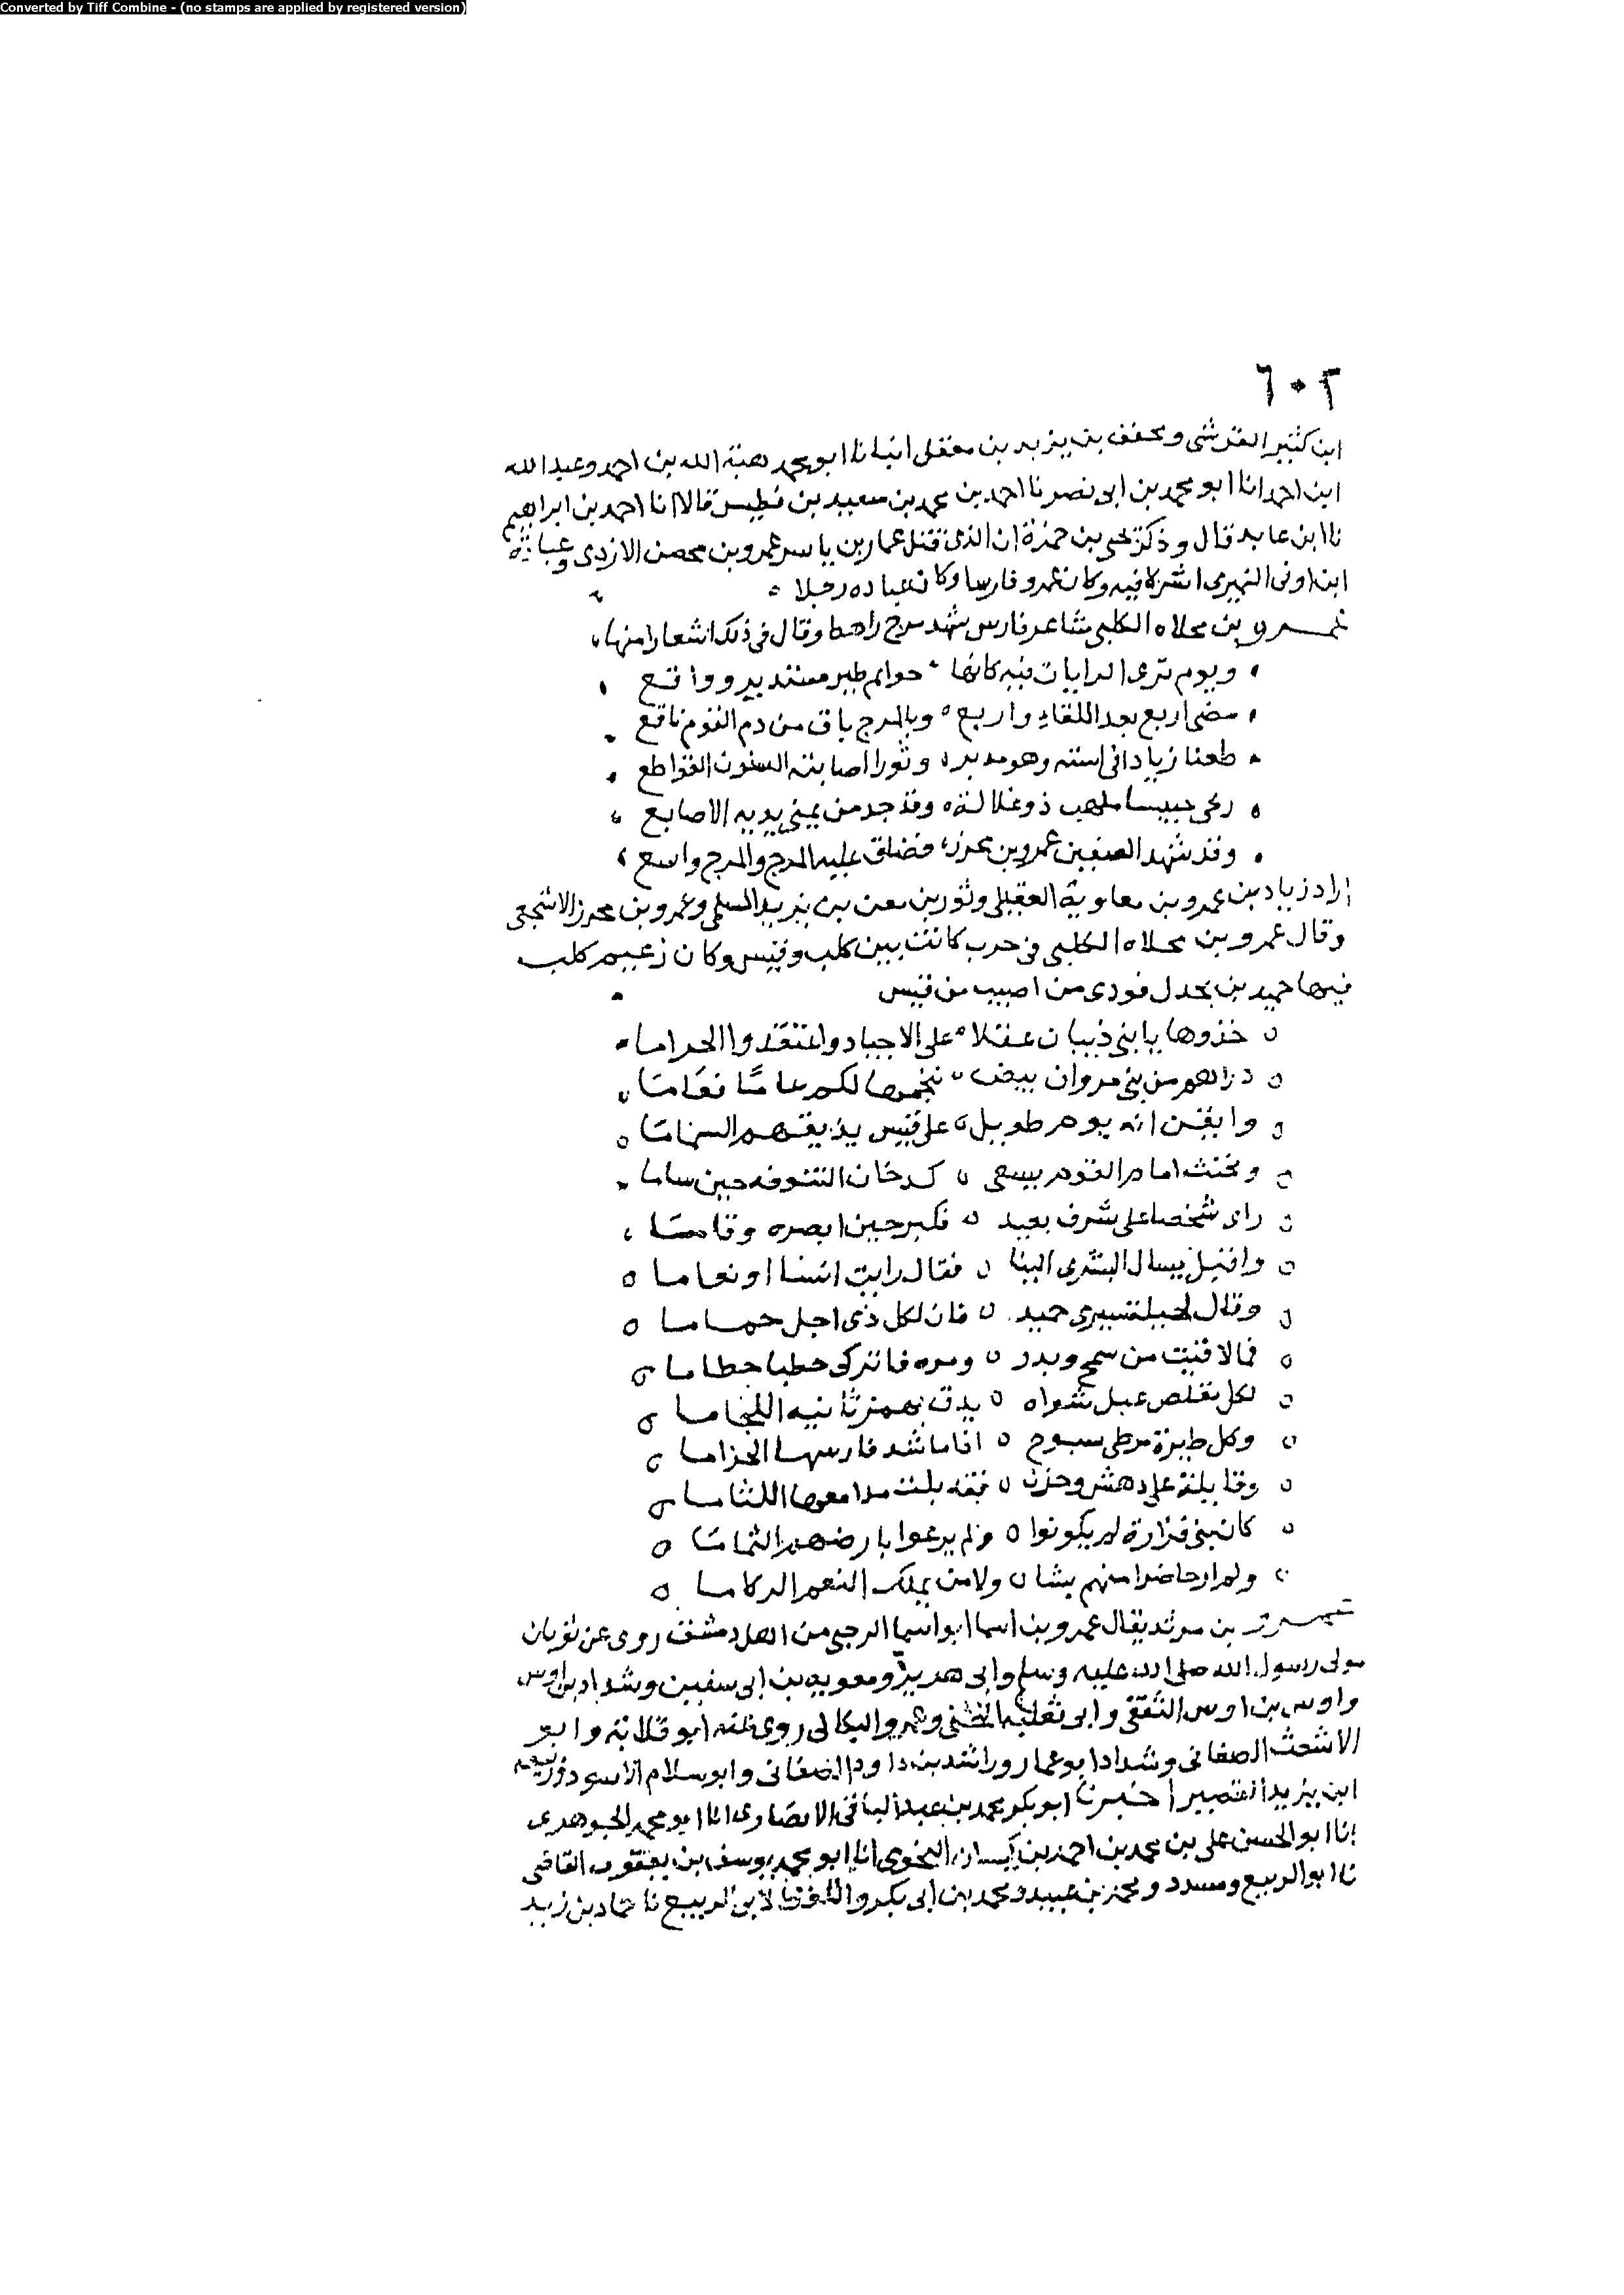 Converted by Tiff Combine - (no stamps are applied by registered version)
٦٠٢
ابن كثير القرشى ومحنف بن يزيد بن معقل انبانا ابو محمد هبة الله بن احمد وعبد الله
ابن احمد انا ابو محمد بن ابى نصر نا احمد بن محمد بن سعيد بن فطيس قالا انا احمد بن ابراهيم
نا ابن عايد قال وذكر يحى بن حمزة ان الذى قتل عمار بن ياسر عمرو بن محصن الازدى وعبادة
ابن اوفى النميرى اشركا فيه وكان عمرو فارسا وكان عباده رجلا
عمرو بن محلاه الكلبى شاعر فارس شهد مرج راهط وقال فى ذلك اشعارا منها
ويوم ترى الرايات فيه كانها حوايم طير مستدير وواقع
مضى اربع بعد اللقاء واربع وبالمرج باق من دم القوم ناقع
طعنا زيادا فى استه وهو مدبر وثورا اصابته السيوف القواطع
وقد جد من يمنى يديه الاصابع
وقد شهد الصفين عمرو بن محرز فضاق عليه المرج والمرج واسع
اراد زياد بن عمرو بن معاوية العقيلى وثور بن معن بن يزيد السلمى وعمرو بن محرز الاشجعى
وقال عمرو بن محلاه الكلبى فى حرب كانت بين كلب وقيس وكان زعيم كلب
فيها حميد بن بحدل فودى من اصيب من قيس
خذوها يا بنى ذبيان عقلا على الاجياد واعتقدوا الحراما
دراهم من بنى مروان بيض ننجمها لكم عاما فعاما
وايقن انه يوم طويل على قيس يذيقهم السماما
امام القوم يسعى حين ساما
راى شخصا على شرف بعيد فكبر حين ابصره وقاما
واقبل يسال البشرى الينا فقال رايت انسا او نعاما
وقال لخيله سيرى حميد فان لكل ذى اجل حماما
فما لاقيت من سمح وبدر ومره فاتركى حطبا حطاما
لكل مقلص عبل شواه يدق بهمز ثانيه اللجاما
وكل طمرة مرطى سبوح اذا ما شد فارسها الحزاما
وقايلة على دهش وحزن فقد بلت مدامعها اللثاما
كان بنى فزارة لم يكونوا ولم يرعوا بارضهم الثماما
ولم ار حاضرا منهم بشا ولا من يملك النعم الركاما
عمرو بن مرثد يقال عمرو بن اسما ابو اسما الرحبى من اهل دمشق روى عن ثوبان
مولى رسول الله صلى الله عليه وسلم وابى هريرة ومعوية بن ابى سفين وشداد بن اوس
واوس بن اوس الثقفى وابو ثعلبة الخشنى وعمرو البكالى روى عنه ابو قلابة وابو
الاشعث الصغانى وشداد ابو عمار وراشد بن داود الصغانى وابو سلام الاسود وربيعه
ابن يزيد القصير اخبرنا ابو بكر محمد بن عبد الباقى الانصارى انا ابو محمد الجوهرى
انا ابو الحسن على بن محمد بن احمد بن كيسان النحوى انا ابو محمد يوسف بن يعقوب القاضى
نا ابو الربيع ومسدد ومحمد بن عبيد ومحمد بن ابى بكر واللفظ لابى الربيع نا حماد بن زيد